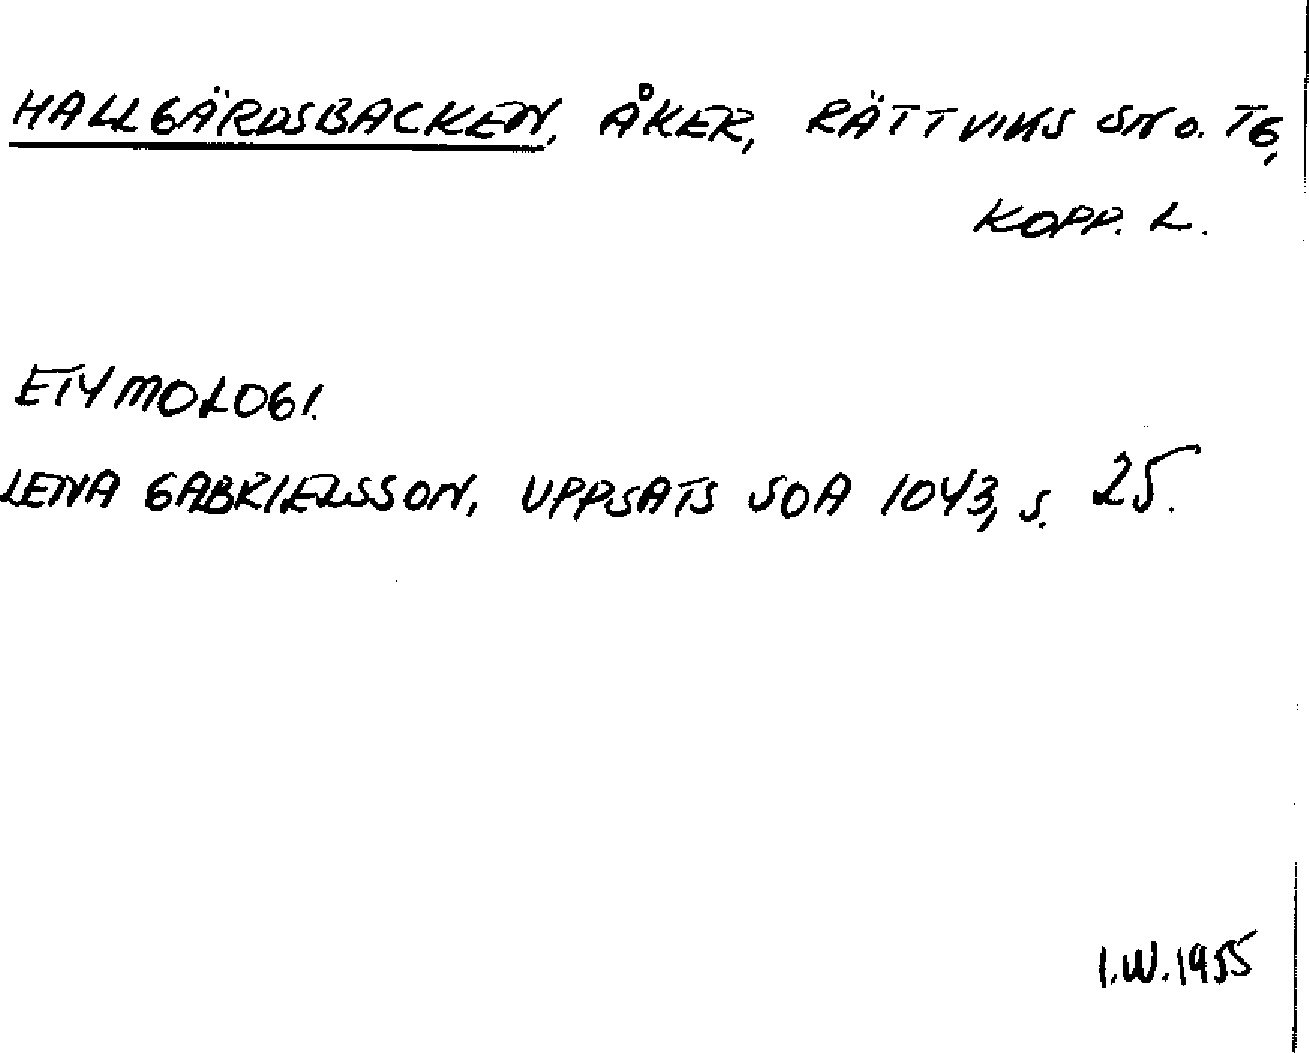 HALLGÄRDSBACKEN, ÅKER, RÄTTVIKS SN O. TG,
KOPP. L.
ETYMOLOGI.
LENA GABRIELSSON, UPPSATS SOA 1043, S. 25.
I.W. 1955